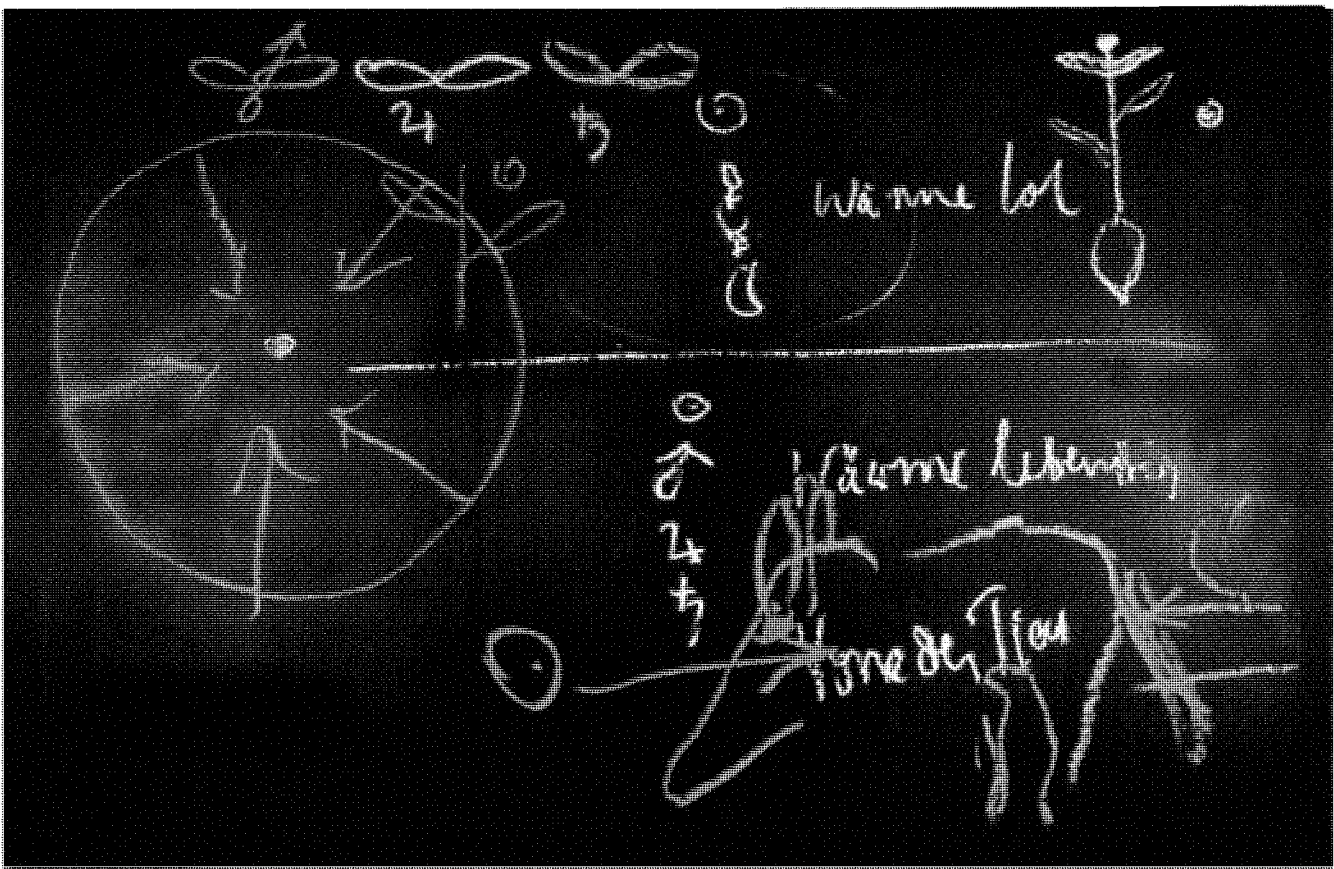 ♃ ♄ ☉
♀
☿
☾
Wärme tot
☉
☉
♂
♃
♄
Wärme lebendig